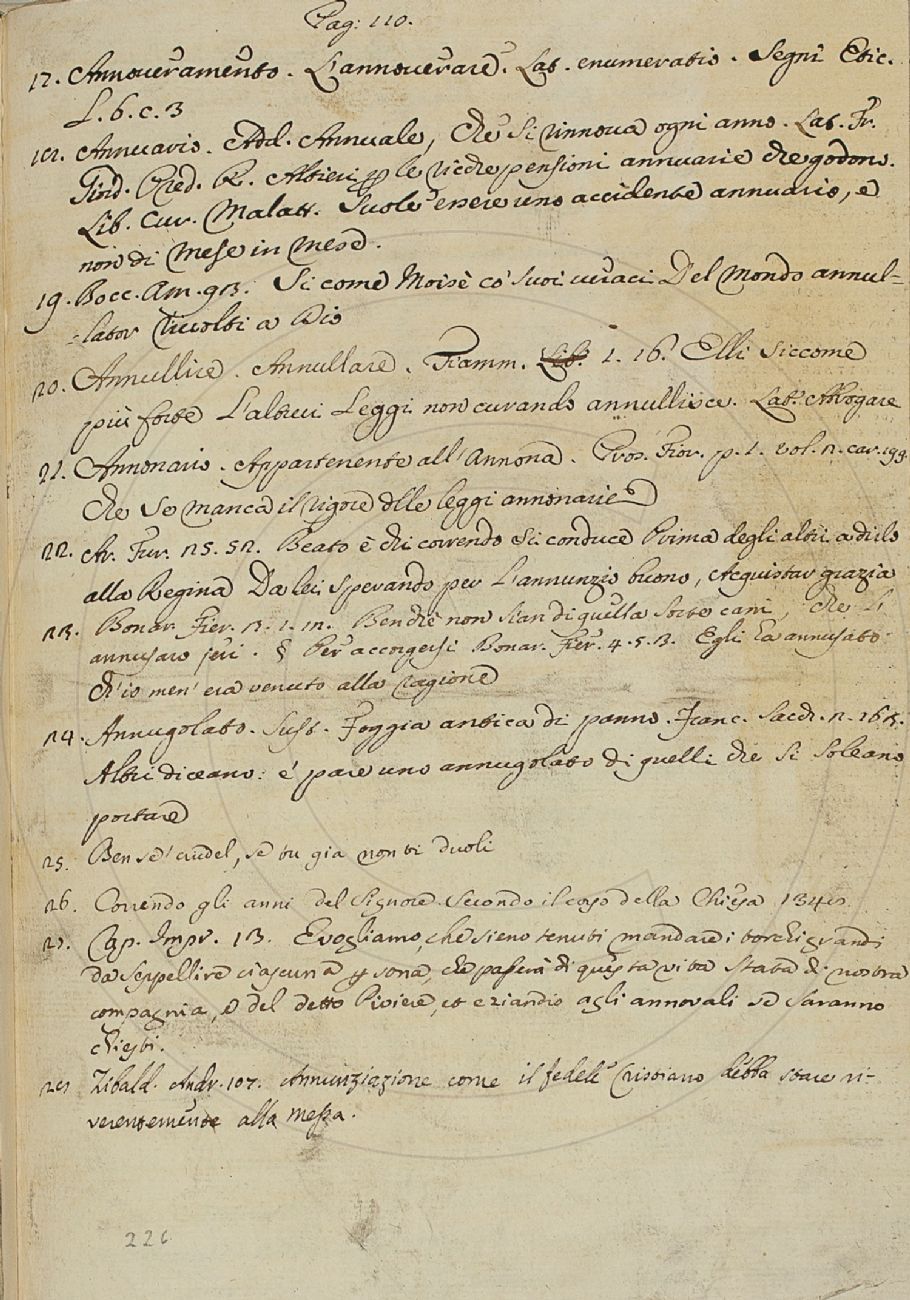 Pag: 110.
17. Annoveramento. L'annoverare. Lat. enumeratio. Segni Etic.
L. 6. c. 3
18. Annuario. Add. Annuale, Che si rinnova ogni anno. Lat. Fr.
Giord. Pred. R. Altieri p le ricche pensioni annuarie che godono.
Lib. Cur. Malatt. Suole essere uno accidente annuario, e
non di mese in mese.
19. Bocc. Am. 93. Si come Moisè co' suoi veraci Del mondo annul-
-lator rivolti a Dio
20. Annullire. Annullare. Fiamm. 1. 16. Elli siccome
più forte L'altrui Leggi non curando annullisce. Lat. Abrogare
21. Annonario. Appartenente all'Annona. Pros. Fior. p. 1. vol. 2. car. 199.
Che se manca il rigore dlle leggi annonarie
22. Ar. Fur. 25. 52. Beato è chi correndo si conduce Prima degli altri a dirlo
alla Regina Da lei sperando per L'annunzio buono, Acquistar grazia
23. Bonar. Fier. 3. 1. Bendhè non sian di quella sorte cani, che li
annusaro jeri. § Per accorgersi Bonar. Fier. 4. 5. 3. Egli ha annusato
ch'io men' era venuto alla ragione
24. Annugolato. Sust. Foggia antica di panno. Franc. Sacch. n. 163.
Altri diceano: e' pare uno annugolato di quelli che si soleano
portare
25. Ben se' crudel, se tu gia non ti duoli
26. Correndo gli anni del Signore secondo il corso della Chiesa 1348.
27. Cap. Impr. 13. E vogliamo, che sieno tenuti mandare i torchi grandi
da seppellire ciascuna p sona, che passerà di questa vita stata di nostra
compagnia, e del detto Piviere, et eziandio agli annovali se saranno
chiesti.
28 Zibald. Andr. 107. Annunziazione come il fedele Cristiano debba stare ri-
verentemente alla messa.
226